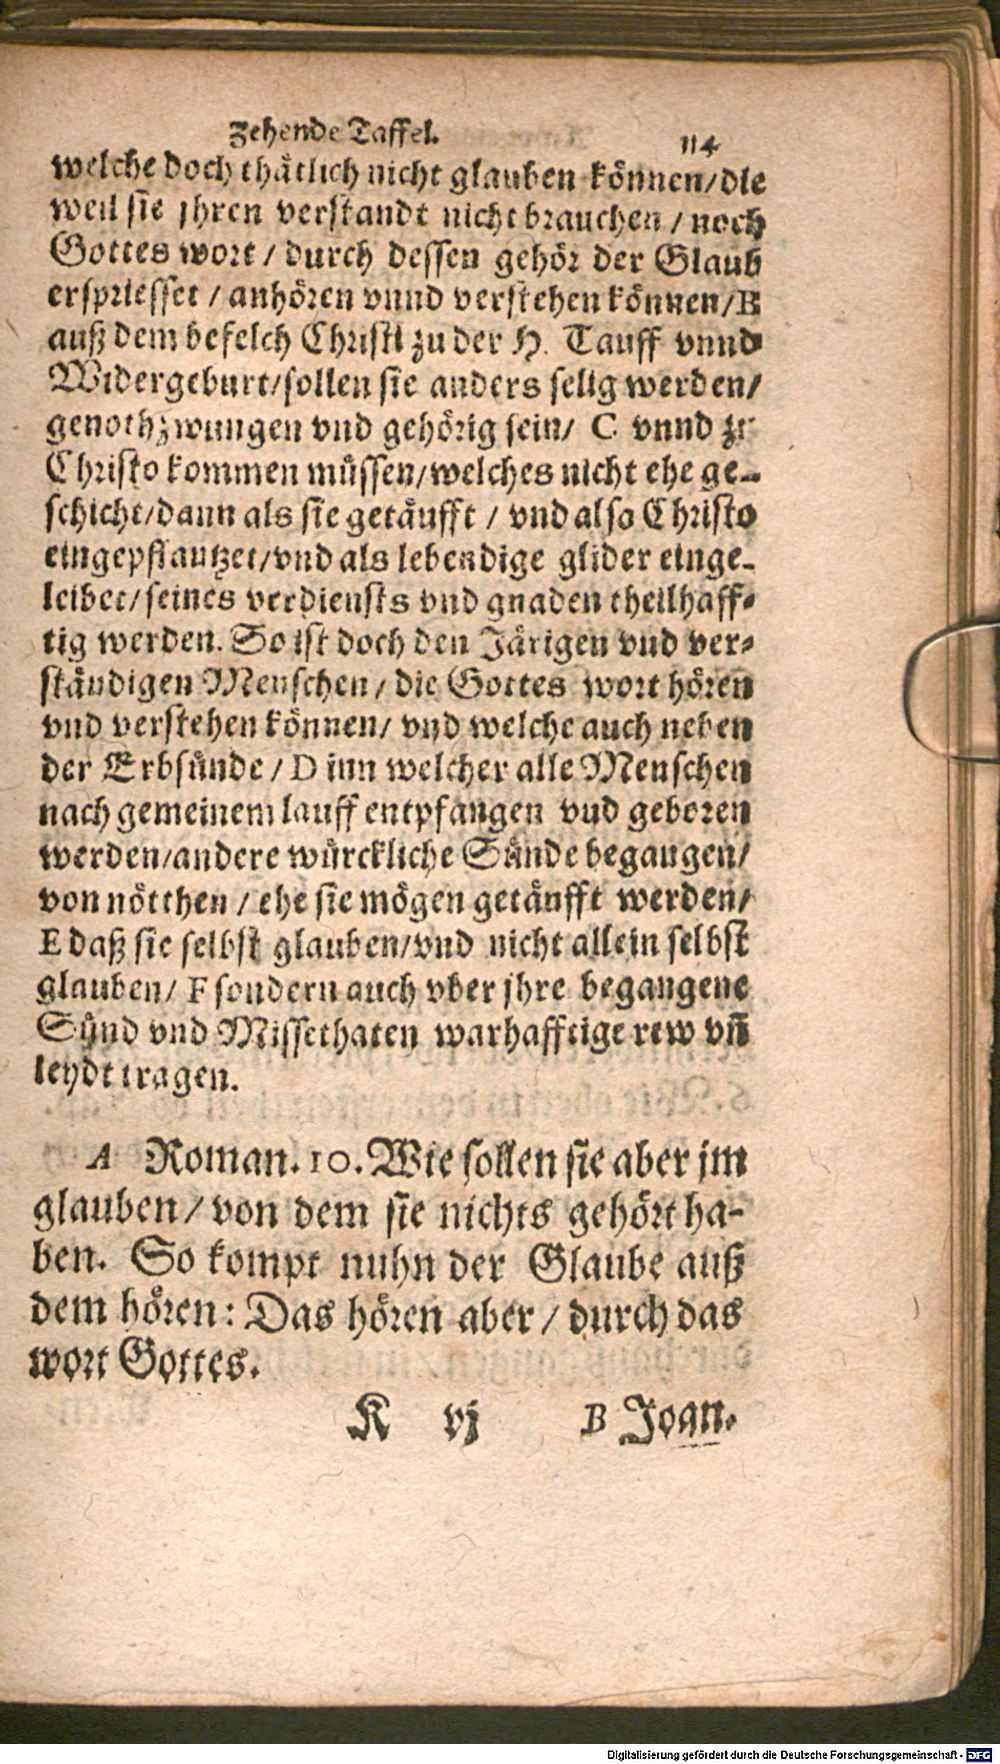 Zehende Taffel. 114
welche doch thätlich nicht glauben können/die
weil sie jhren verstandt nicht brauchen / noch
Gottes wort / durch dessen gehör der Glaub
erspriesset / anhören vnnd verstehen können/B
auß dem befelch Christi zu der H. Tauff vnnd
Widergeburt/sollen sie anders selig werden/
genothzwungen vnd gehörig sein/ C vnnd zu
Christo kommen müssen/welches nicht ehe ge-
schicht/dann als sie getäufft / vnd also Christo
eingepflantzet/vnd als lebendige glider einge-
leibet/seines verdiensts vnd gnaden theilhaff-
tig werden. So ist doch den Järigen vnd ver-
ständigen Menschen / die Gottes wort hören
vnd verstehen können/ vnd welche auch neben
der Erbsünde / D inn welcher alle Menschen
nach gemeinem lauff entpfangen vnd geboren
werden/andere würckliche Sünde begangen/
von nötthen / ehe sie mögen getäufft werden/
E daß sie selbst glauben/vnd nicht allein selbst
glauben/ F sondern auch vber jhre begangene
Sünd vnd Missethaten warhafftige rew vñ
leydt tragen.
A Roman. 10. Wie sollen sie aber jm
glauben / von dem sie nichts gehört ha-
ben. So kompt nuhn der Glaube auß
dem hören: Das hören aber / durch das
wort Gottes.
K vj B Joan.
Digitalisierung gefördert durch die Deutsche Forschungsgemeinschaft - DFG